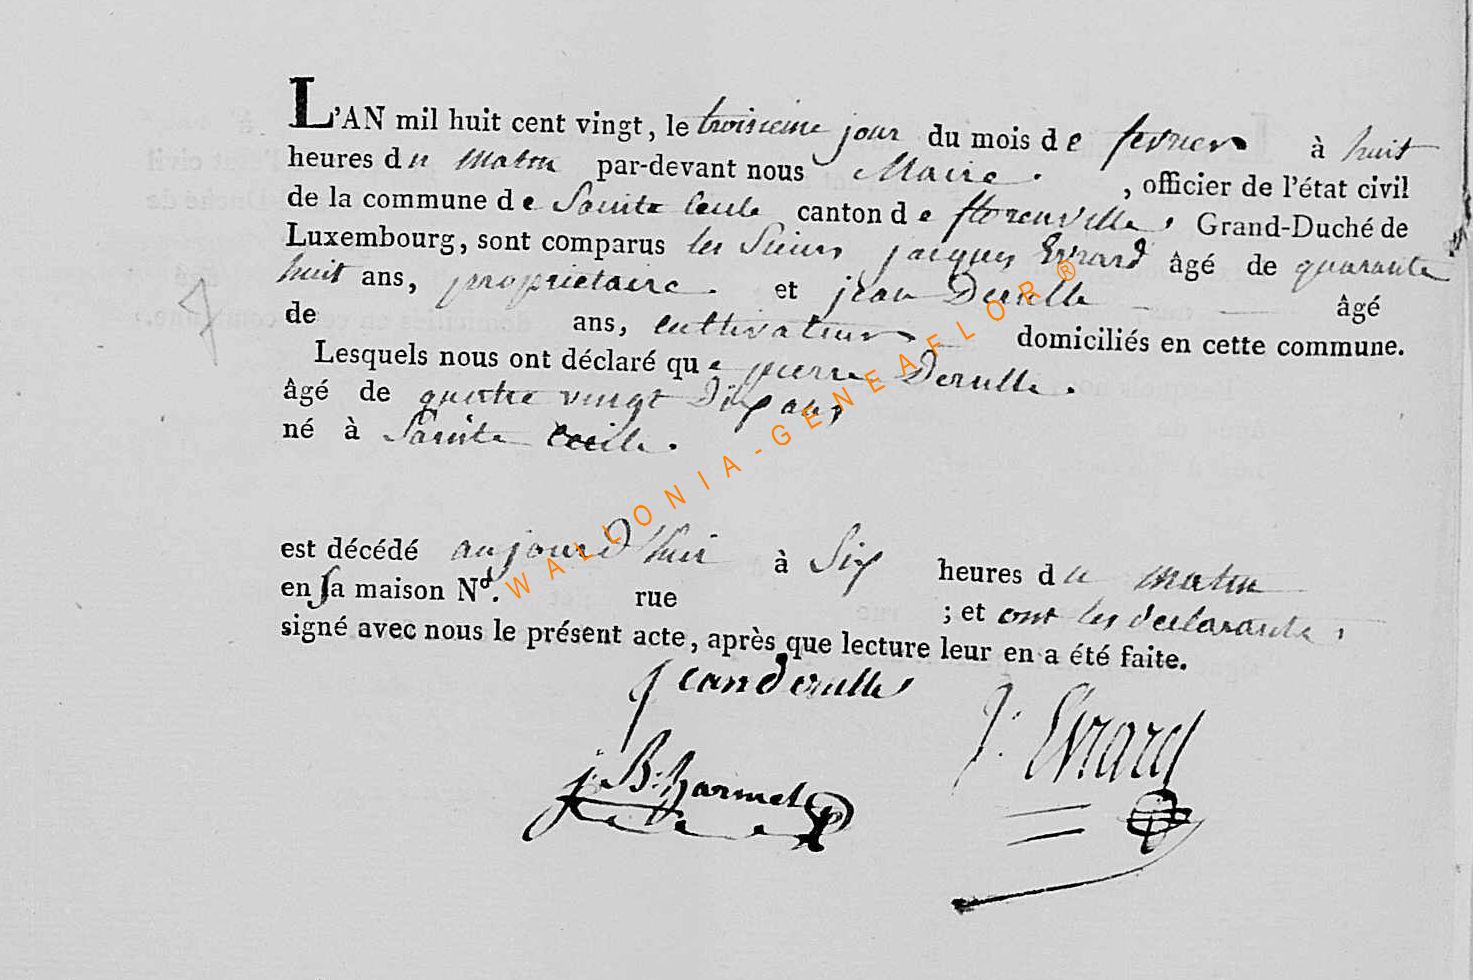 L'AN mil huit cent vingt, le troisieme jour du mois de fevrier à huit
heures du matin par-devant nous Maire. , officier de l'état civil
de la commune de Sainte Cecile canton de florenville, Grand-Duché de
Luxembourg, sont comparus les Sieurs jacques Evrard âgé de quarante
huit ans, propriétaire. et jean Derulle âgé
de ans, cultivateur domiciliés en cette commune.
Lesquels nous ont déclaré que pierre Derulle.
âgé de quatre vingt Dix ans
né à Sainte Cecile.
est décédé aujourd'hui à Six heures du matin
en sa maison Nº. rue ; et ont les declarants,
signé avec nous le présent acte, après que lecture leur en a été faite.
jean derulle
J. Evrard
j. B. harmel
WALLONIA-GENEAFLOR®